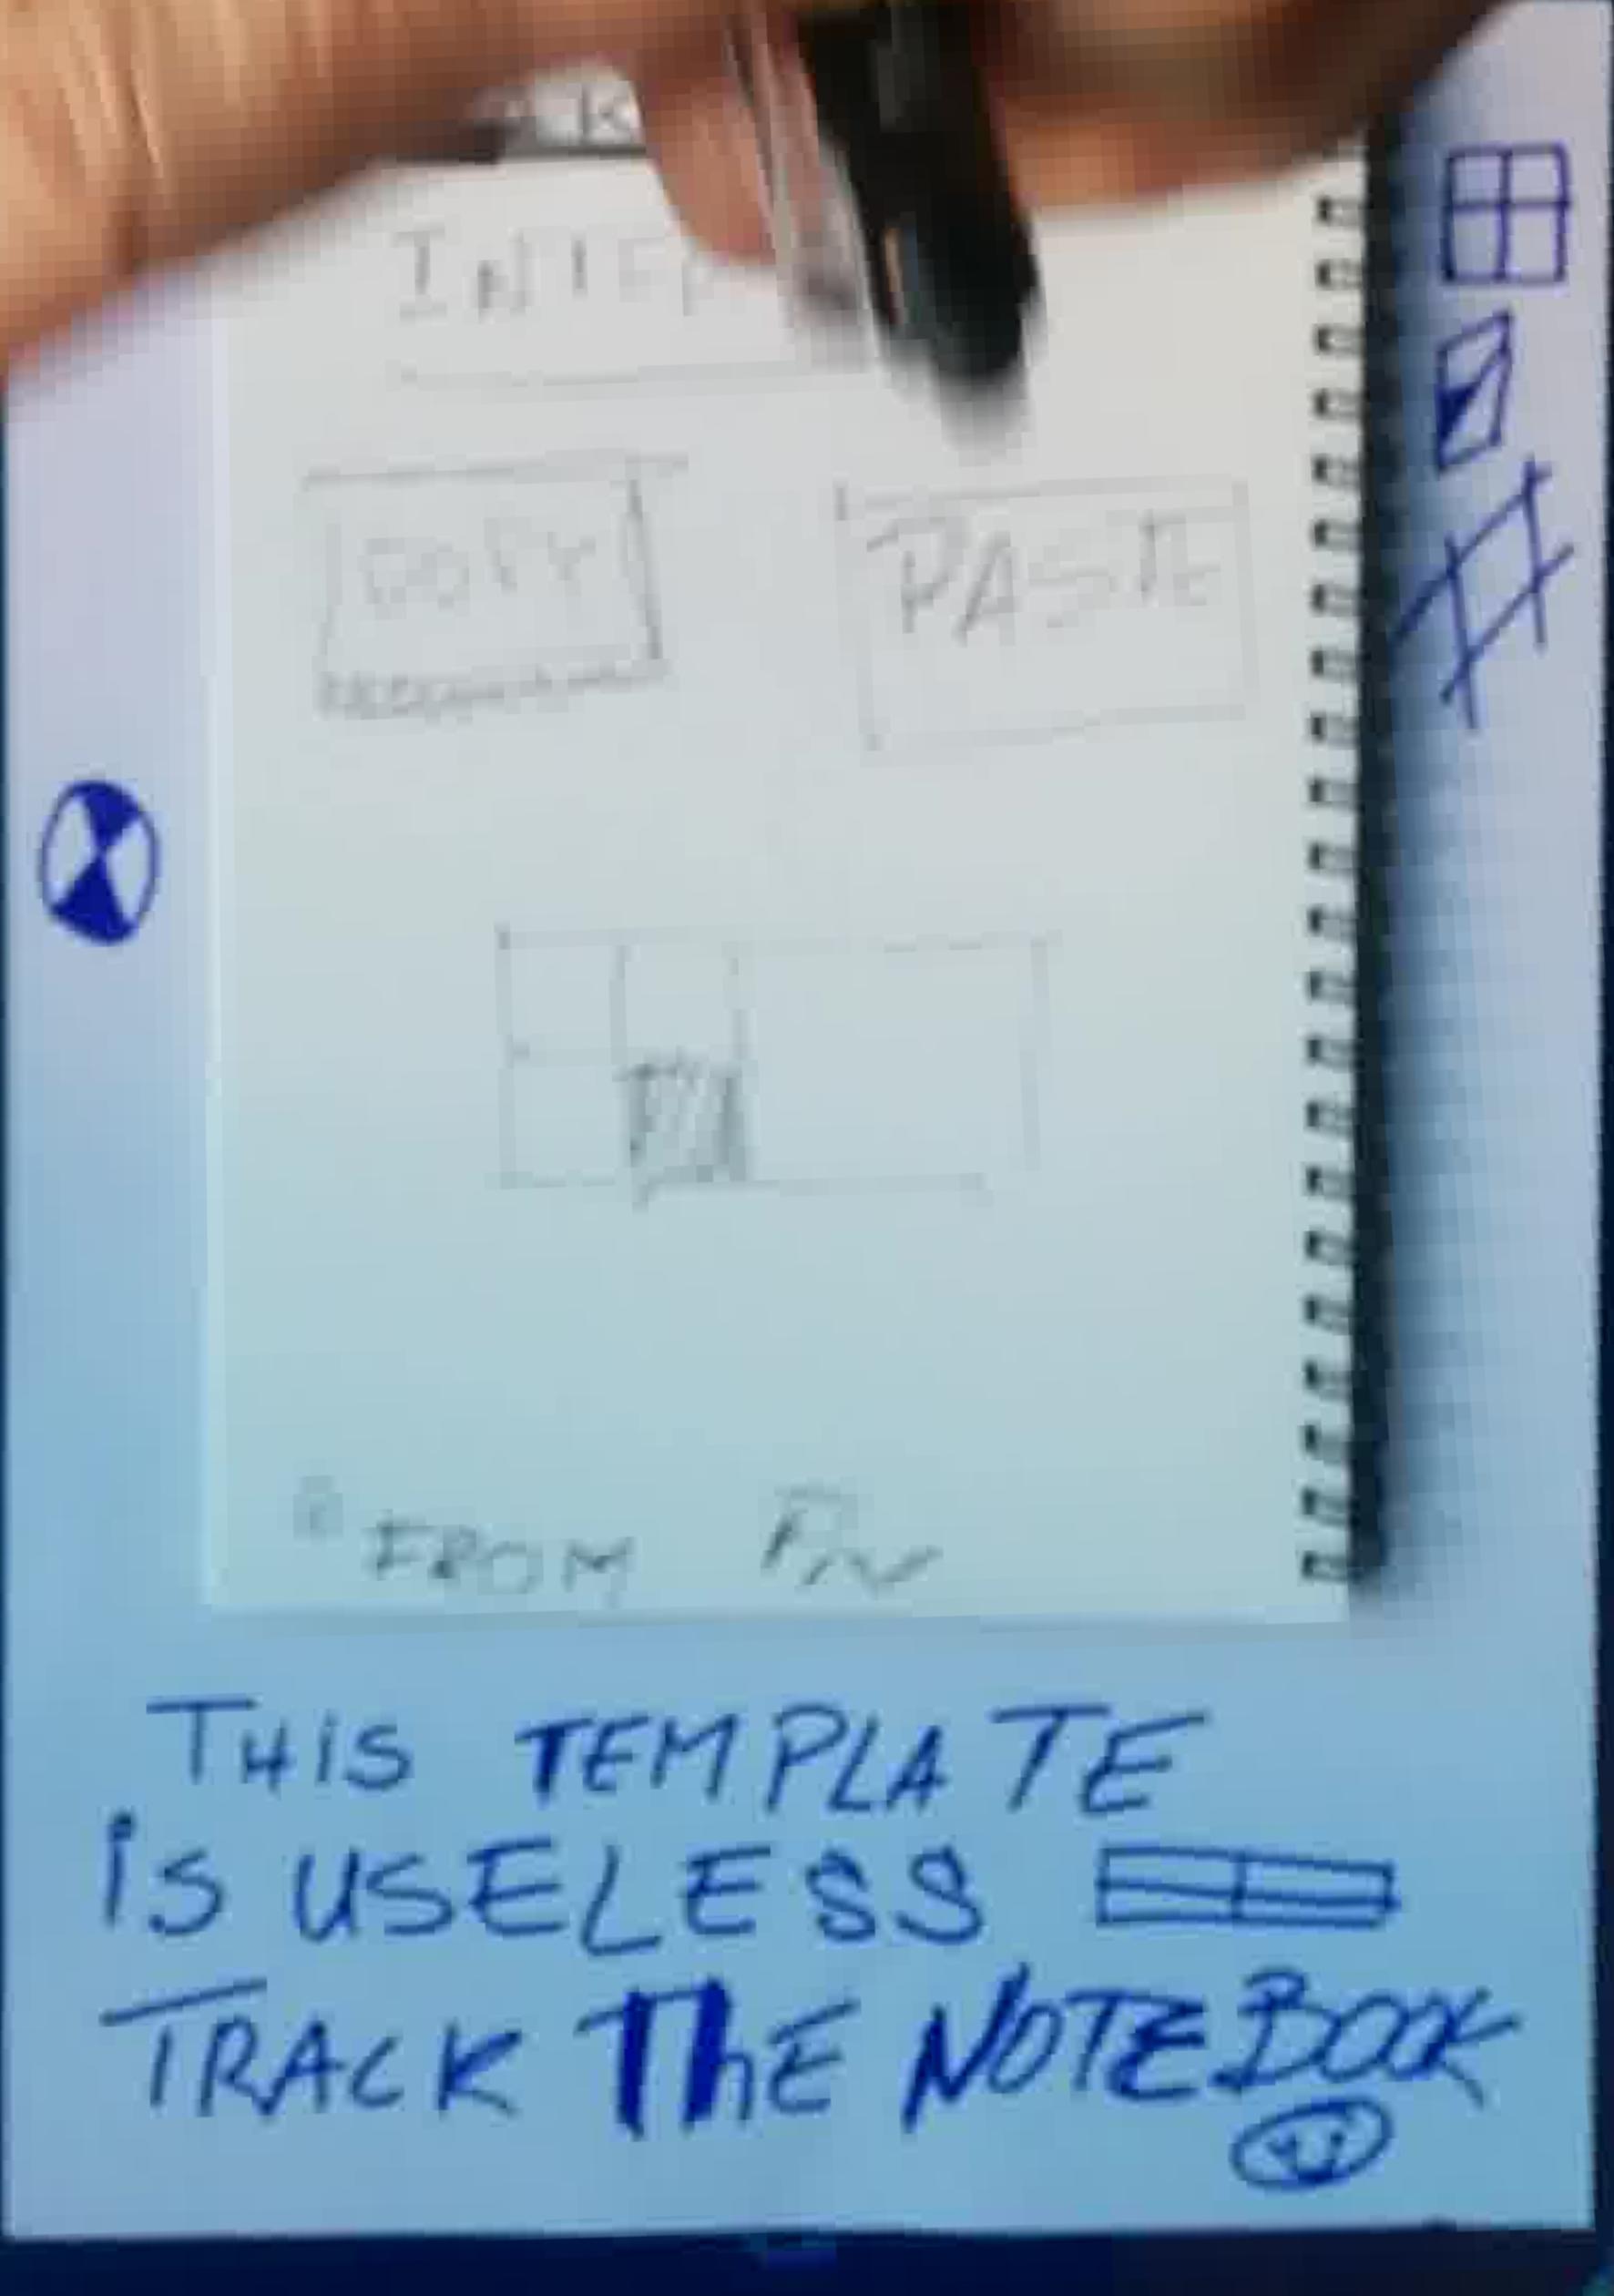 COPY
PASTE
FROM
THIS TEMPLATE
iS USELESS
TRACK ThE NOTEBOOK